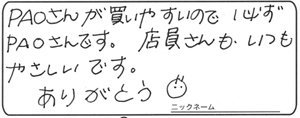 PAOさんが買いやすいので 必ず
PAOさんです。 店員さんも、いつも
やさしいです。
ありがとう
ニックネーム